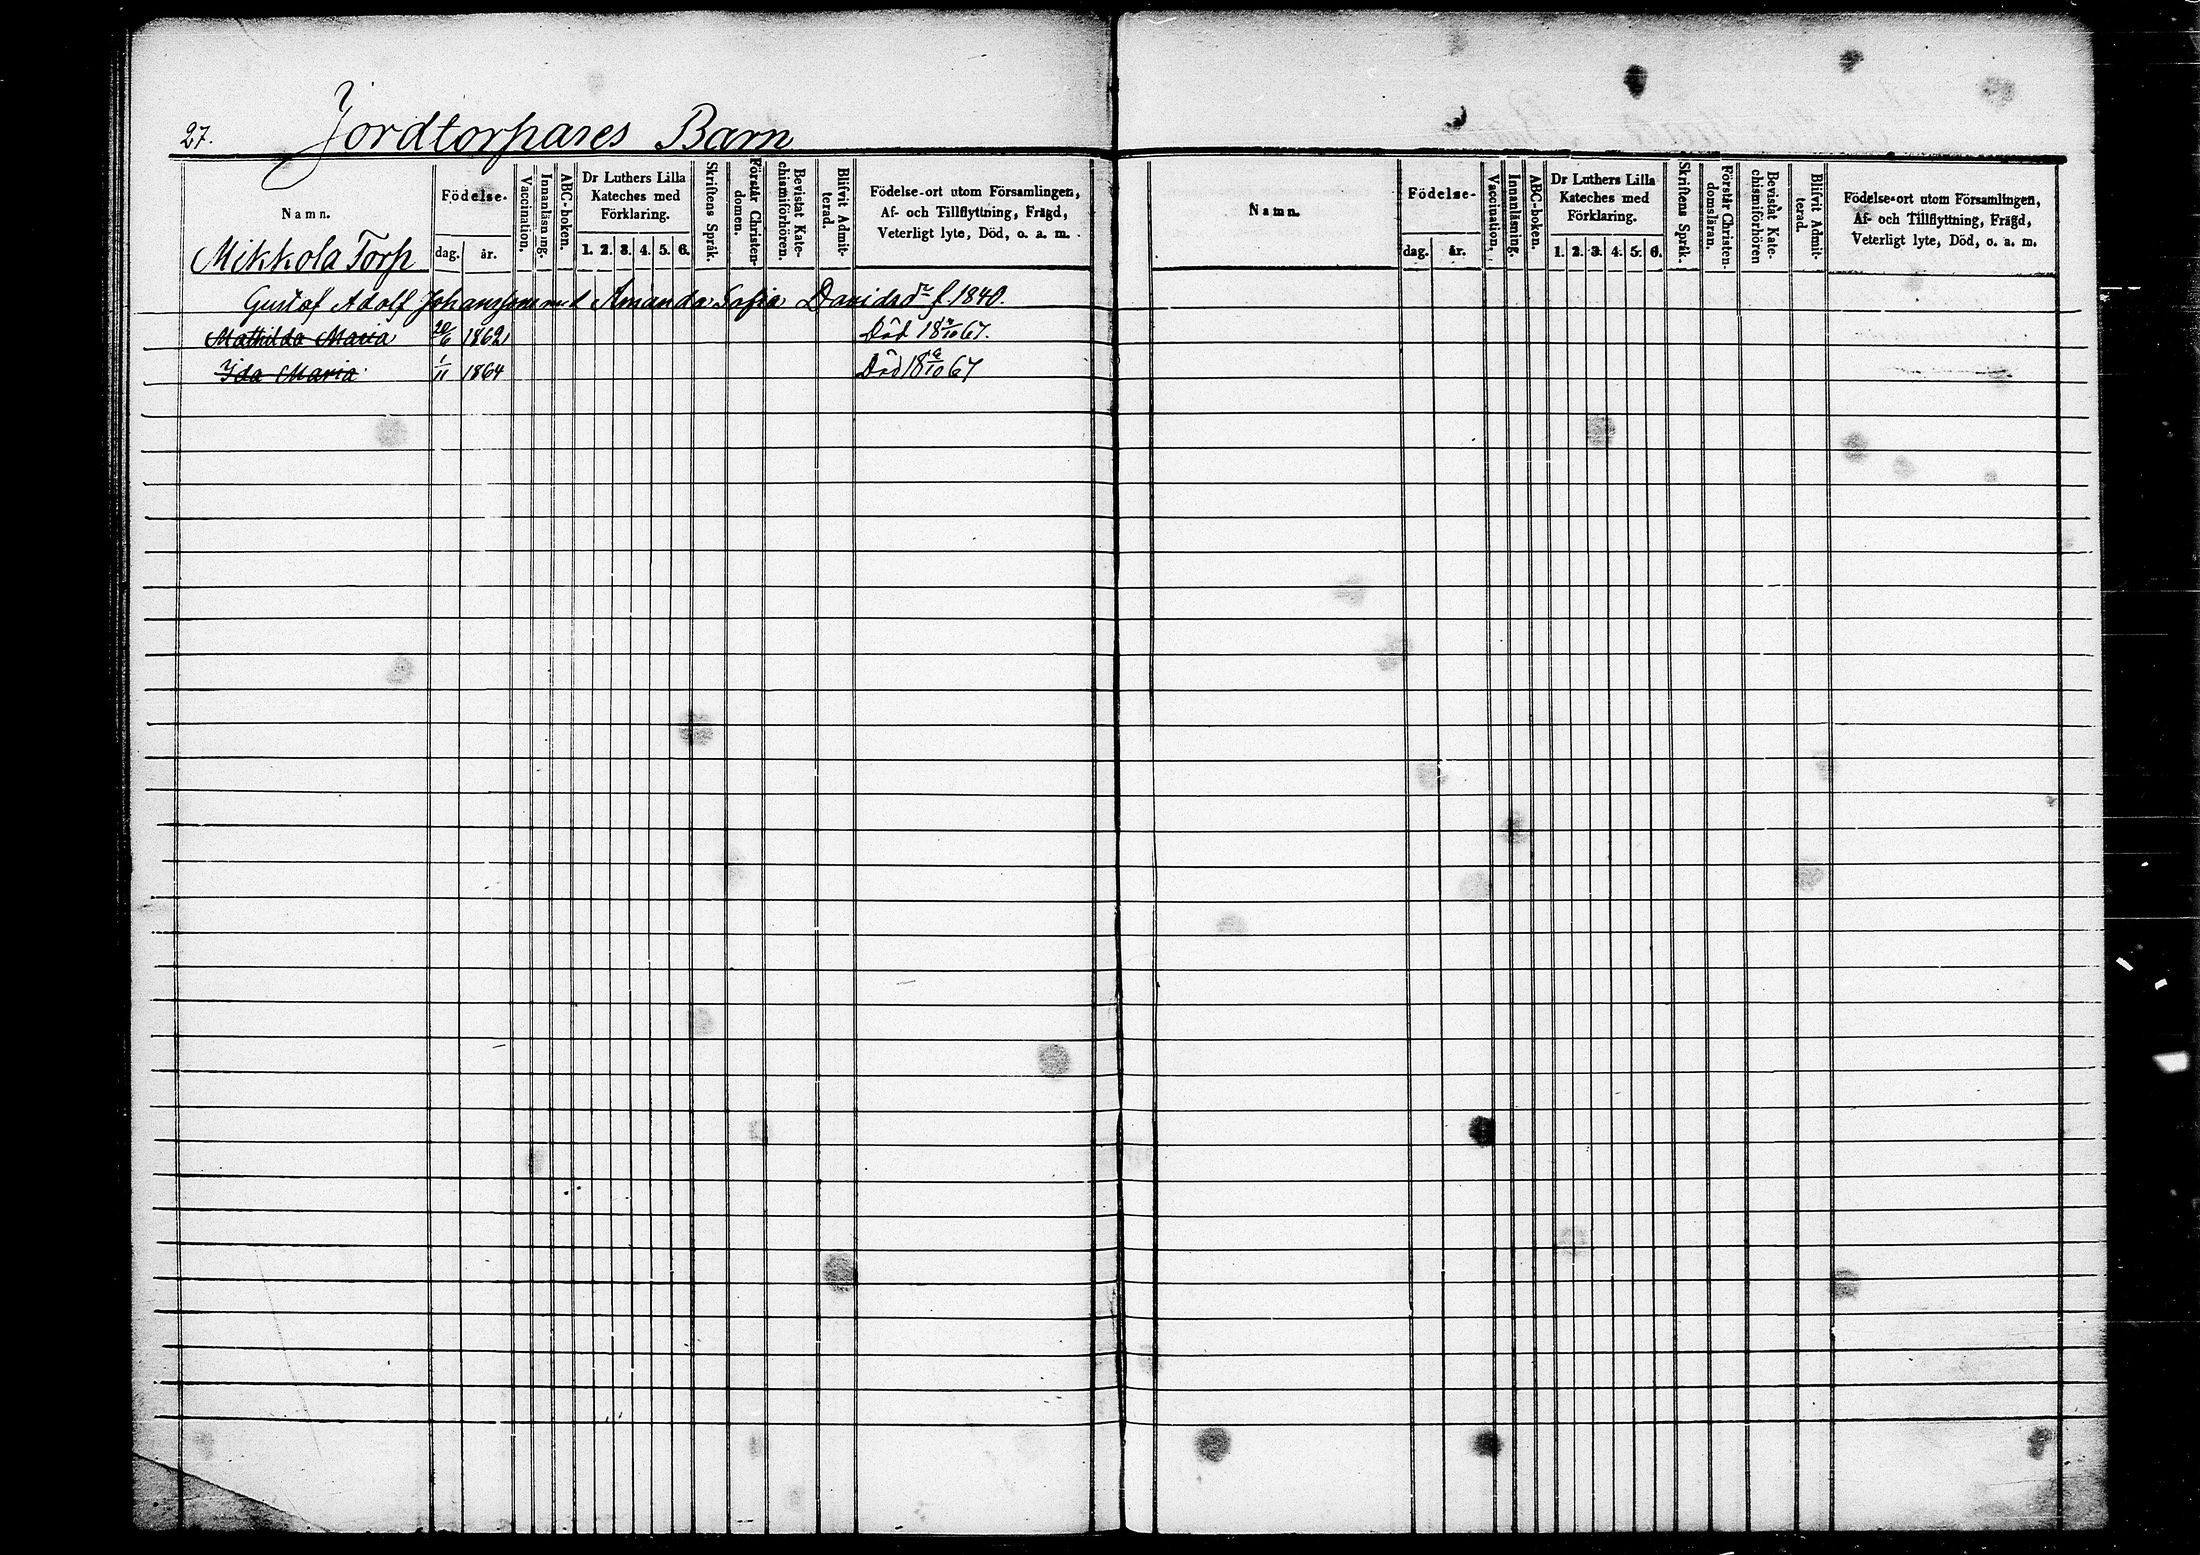 27. Jordtorpares Barn
Namn.
Mikkola Torp
Födelse-
dag.
år.
Vaccination.
Innanläsning.
ABC-boken.
Dr Luthers Lilla
Kateches med
Förklaring.
1. 2. 3. 4. 5. 6.
Skriftens Språk.
Förstår Christen-
domen.
Bevistat Kate-
chismiförhören.
Blifvit Admit-
terad.
Födelse-ort utom Församlingen,
Af- och Tillflyttning, Frägd,
Veterligt lyte, Död, o. a. m.
Gustaf Adolf Johansson med Amanda Sofia Davidsdr f. 1840.
Mathilda Maria 20/6 1862 Död 18 /10 67.
Ida Maria 1/11 1864 Död 18 /10 67
Namn.
Födelse-
dag.
år.
Vaccination.
Innanläsning.
ABC-boken.
Dr Luthers Lilla
Kateches med
Förklaring.
1. 2. 3. 4. 5. 6.
Skriftens Språk.
Förstår Christen-
domsläran.
Bevistat Kate-
chismiförhören
Blifvit Admit-
terad.
Födelse-ort utom Församlingen,
Af- och Tillflyttning, Frägd,
Veterligt lyte, Död, o. a. m.